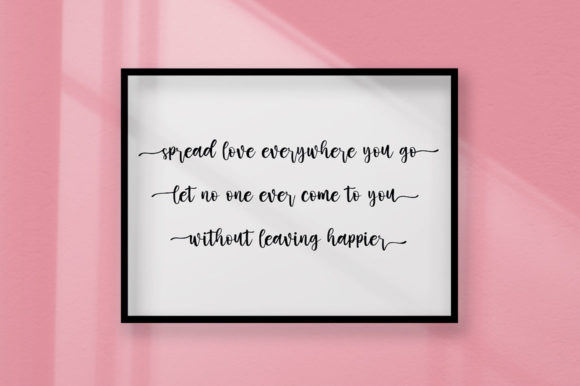 spread love everywhere you go
let no one ever come to you
without leaving happier